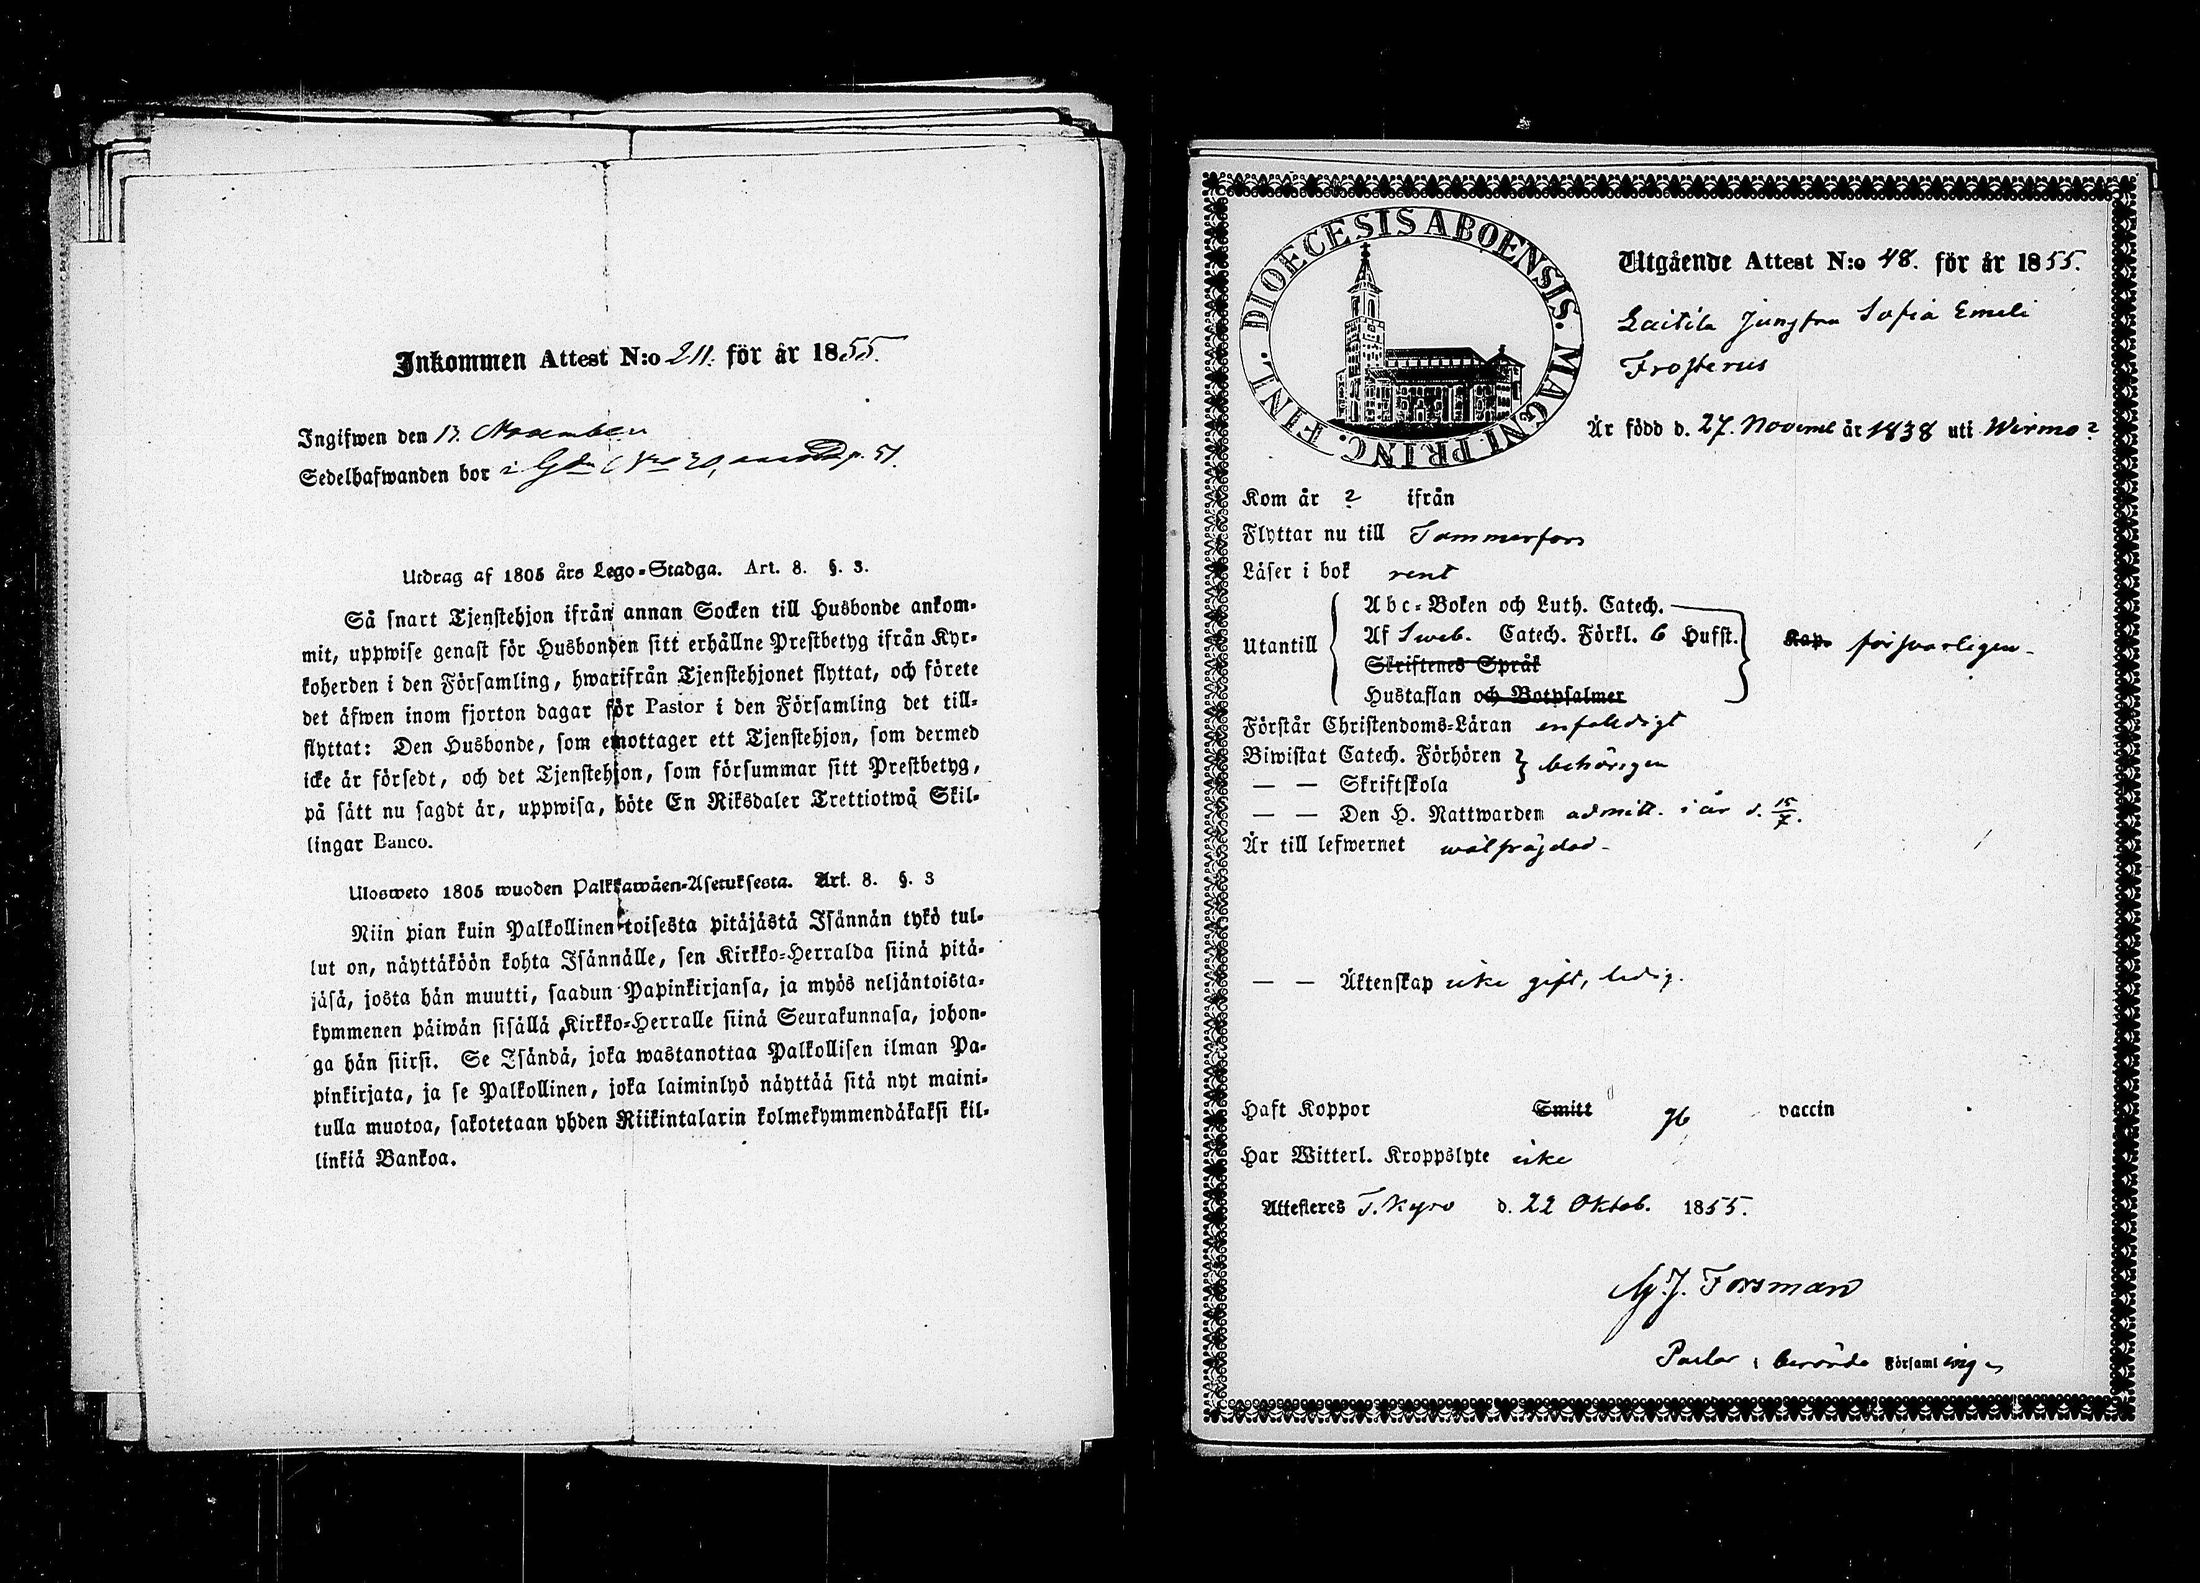 Inkommen Attest N:o 211. för år 1855.
Ingifwen den 13. November
Sedelhafwanden bor i Gdn N:ro 20, p. 51.
Utdrag af 1805 års Lego-Stadga. Art. 8. §. 3.
Så snart Tjenstehjon ifrån annan Socken till Husbonde ankom-
mit, uppwise genast för Husbonden sitt erhållne Prestbetyg ifrån Kyr-
koherden i den Församling, hwarifrån Tjenstehjonet flyttat, och förete
det äfwen inom fjorton dagar för Pastor i den Församling det till-
flyttat: Den Husbonde, som emottager ett Tjenstehjon, som dermed
icke är försedt, och det Tjenstehjon, som försummar sitt Prestbetyg,
på sätt nu sagdt är, uppwisa, böte En Riksdaler Trettiotwå Skil-
lingar Banco.
Ulosweto 1805 wuoden Palkkawäen-Asetuksesta. Art. 8. §. 3
Niin pian kuin Palkollinen toisesta pitäjästä Isännän tykö tul-
lut on, näyttäköön kohta Isännälle, sen Kirkko-Herralda siinä pitä-
jäsä, josta hän muutti, saadun Papinkirjansa, ja myös neljäntoista-
kymmenen päiwän sisällä Kirkko-Herralle siinä Seurakunnasa, johon-
ga hän siirsi. Se Isändä, joka wastanottaa Palkollisen ilman Pa-
pinkirjata, ja se Palkollinen, joka laiminlyö näyttää sitä nyt maini-
tulla muotoa, sakotetaan yhden Riikintalarin kolmekymmendäkaksi kil-
linkiä Bankoa.
FINL. DIOECESIS ABOENSIS. MAGNI PRINC.
Utgående Attest N:o 48. för år 1855.
Laitila Jungfru Sofia Emeli
Frosterus
Är född d. 27. Novemb år 1838 uti Wirmo?
Kom år ? ifrån
Flyttar nu till Tammerfors
Läser i bok rent
Utantill
Abc-Boken och Luth. Catech.
Af Sweb. Catech. Förkl. 6 Hufst.
Skriftenes Språk
Hustaflan och Botpsalmer
Kap. försvarligen
Förstår Christendoms-Läran enfaldigt
Biwistat Catech. Förhören
behörigen
— — Skriftskola
— — Den H. Nattwarden admitt. i år d. 15/7.
Är till lefwernet wälfräjdad
— — Äktenskap icke gift, ledig.
Haft Koppor Smitt gb vaccin
Har Witterl. Kroppslyte icke
Attesteres T. Kyro d. 22 Oktob. 1855.
G. J. Forsman
Pastor i berörde Församlingen